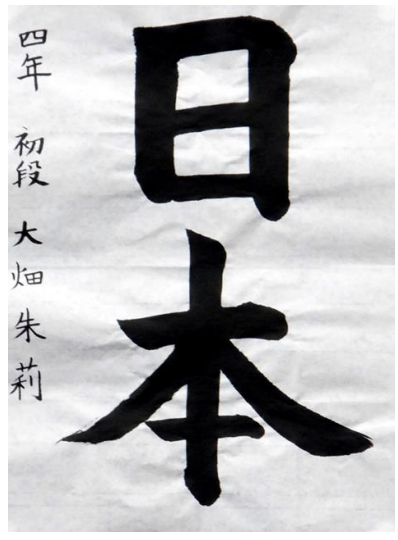 日本
四年 初段 大畑朱莉